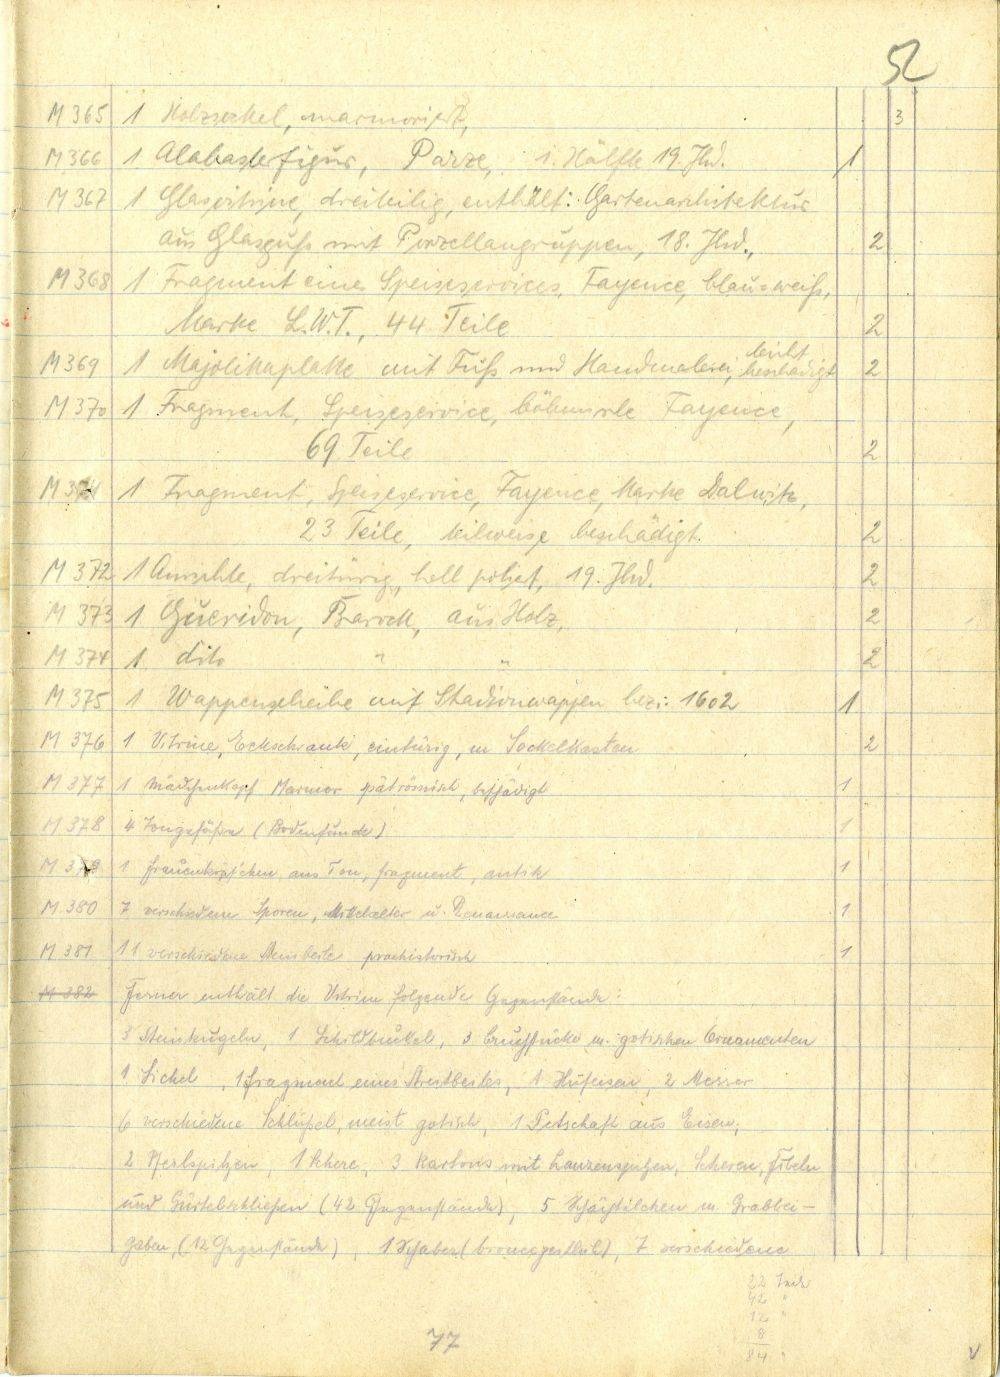 52
M 365 1 Holzsockel, marmoriert, 3
M 366 1 Alabasterfigur, Parze, 1. Hälfte 19. Jhd. 1
M 367 1 Glasvitrine, dreiteilig, enthält: Gartenarchitektur
aus Glasguß mit Porzellangruppen, 18. Jhd., 2
M 368 1 Fragment eines Speiseservices, Fayence, blau-weiß,
Marke L.W.T., 44 Teile 2
M 369 1 Majolikaplatte mit Fuß und Handmalerei, leicht beschädigt 2
M 370 1 Fragment, Speiseservice, böhmische Fayence,
69 Teile 2
M 371 1 Fragment, Speiseservice, Fayence, Marke Dalwitz,
23 Teile, teilweise beschädigt. 2
M 372 1 Anrichte, dreitürig, hell poliert, 19. Jhd. 2
M 373 1 Gueridon, Barock, aus Holz, 2
M 374 1 dito " " 2
M 375 1 Wappenscheibe mit Stadionwappen bez: 1602 1
M 376 1 Vitrine, Eckschrank, eintürig, m Sockelkasten 2
M 377 1 Mädchenkopf Marmor spätrömisch, beschädigt 1
M 378 4 Tongefäße (Bodenfunde) 1
M 379 1 Frauenköpfchen aus Ton, fragment, antik 1
M 380 7 verschiedene Sporen, Mittelalter u. Renaissance 1
M 381 11 verschiedene Steinbeile praehistorisch 1
M 382 Ferner enthält die Vitrine folgende Gegenstände:
3 Steinkugeln, 1 Schildbuckel, 3 Bruchstücke m. gotischen Ornamenten
1 Sichel, 1 fragment eines Streitbeiles, 1 Hufeisen, 2 Messer
6 verschiedene Schlüssel, meist gotisch, 1 Petschaft aus Eisen,
2 Pfeilspitzen, 1 Schere, 3 Kartons mit Lanzenspitzen, Scheren, Fibeln
und Gürtelschließen (42 Gegenstände), 5 m. Grabbei-
gaben (12 Gegenstände), 1 Schaber 7 verschiedene
22 Stück
42 "
12 "
8
84 "
77